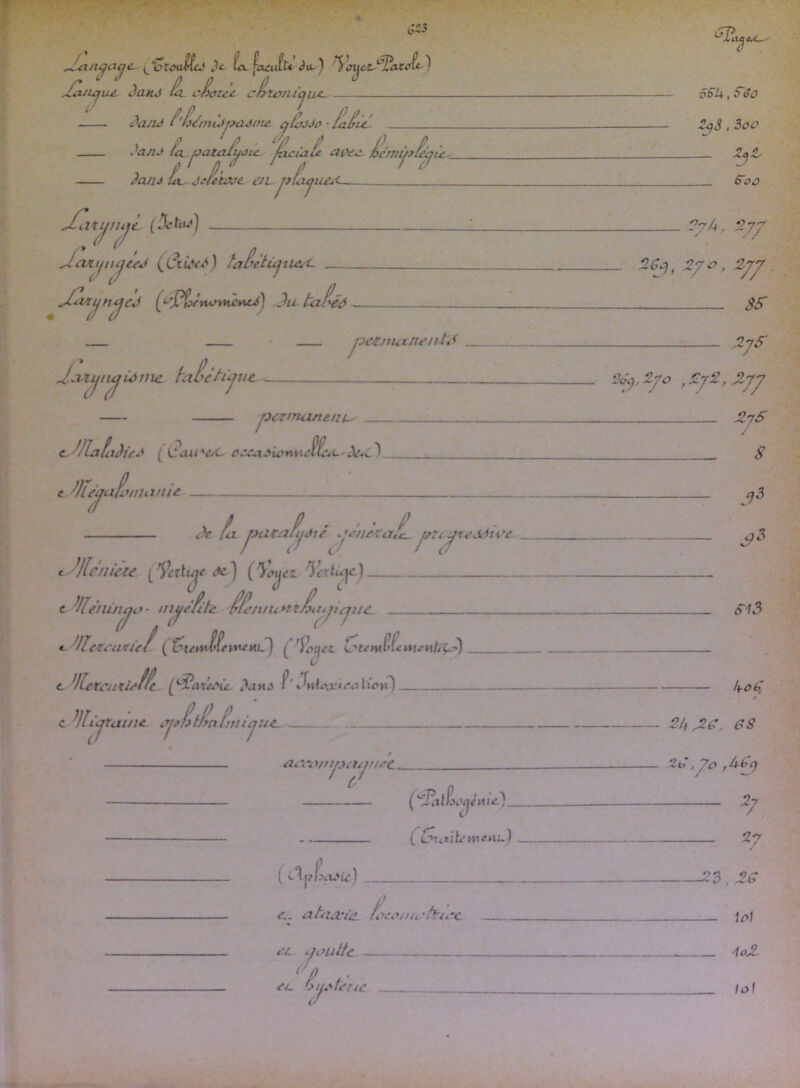 623
Pages
Langage (Troubles de la faculté du) (Voyez Parole)
Langue dans la chorée chronique 554, 560
— dans l'hémispasme glosso-labié 298, 300
— dans la paralysie faciale avec hémiplégie 292
— dans la sclérose en plaques 500
Laryngé (Ictus) 274, 277
Laryngées (Crises) tabétiques 269, 270, 277.
Laryngés (Phénomènes) du tabès 85
— — — permanents 275
Laryngisme tabétique 269, 270, 272, 277
— — permanent 275
Maladies (Causes occasionnelles des) 8
Mégalomanie 93
— de la paralysie générale progressive 93
Ménière (Vertige de) (Voyez Vertige)
Méningo-myélite blennorrhagique 513
Mercuriel (Tremblement) (Voyez Tremblements)
Mercurielle (Parésie dans l'Intoxication) 406
Migraine ophthalmique 24, 26, 68
— accompagnée 26, 70, 469
— — (Pathogénie) 27
— — (Traitement) 27
— (Aphasie) 23, 26
— et ataxie locomotrice 101
— et goutte 102
— et hystérie 101